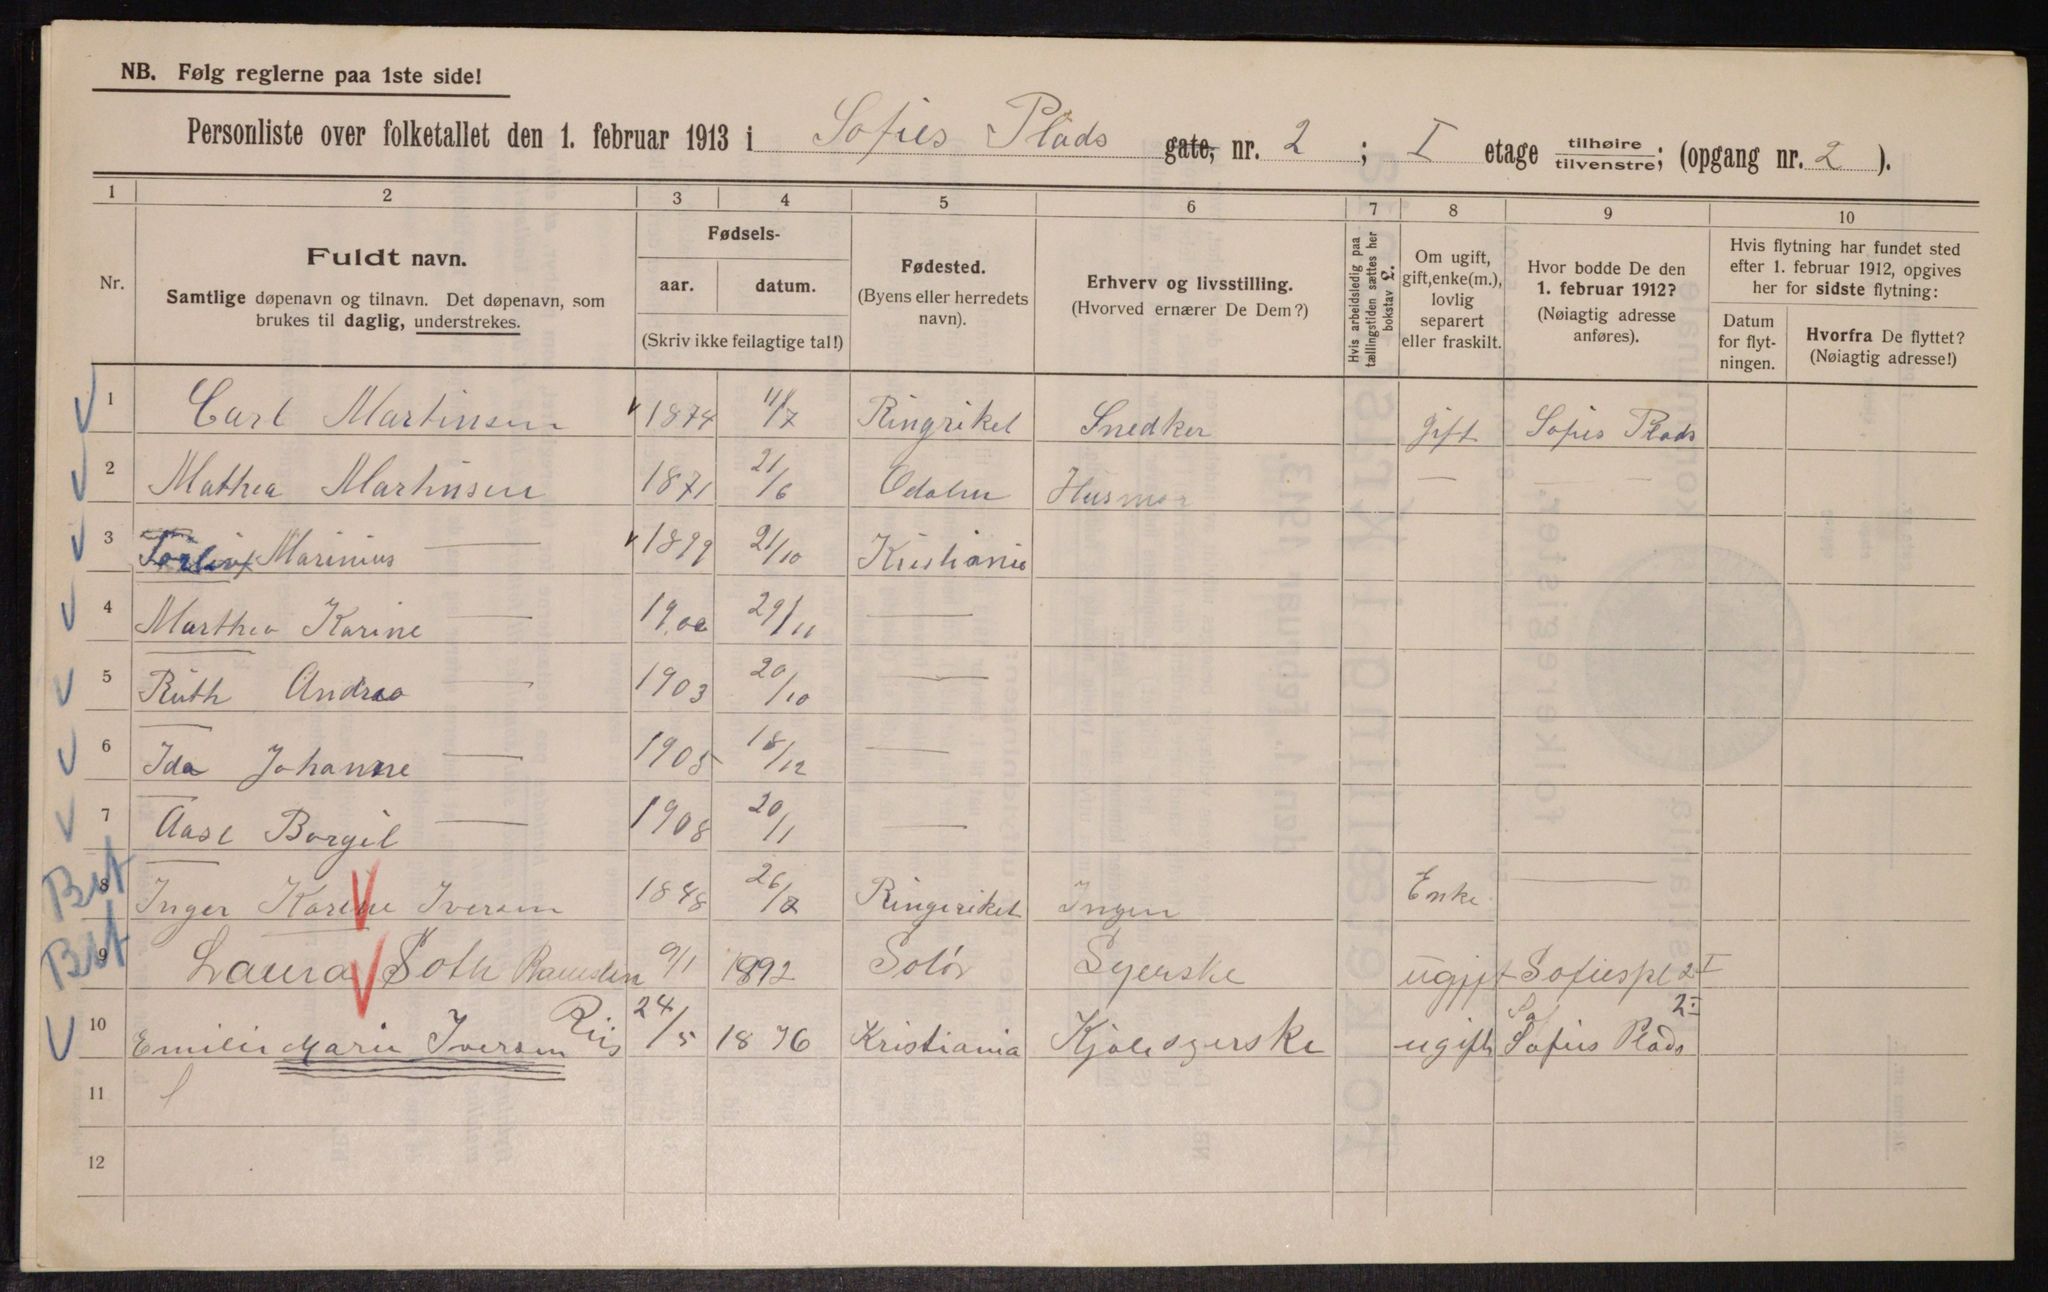 NB. Følg reglerne paa 1ste side!
Personliste over folketallet den 1. februar 1913 i Sofies Plads gate, nr. 2 ; I etage tilhøire tilvenstre; (opgang nr. 2 ).
1 2 3 4 5 6 7 8 9 10
Nr.
Fuldt navn.
Samtlige døpenavn og tilnavn. Det døpenavn, som
brukes til daglig, understrekes.
Fødsels-
aar. datum.
(Skriv ikke feilagtige tal!)
Fødested.
(Byens eller herredets
navn).
Erhverv og livsstilling.
(Hvorved ernærer De Dem?)
Hvis arbeidsledig paa
tællingstiden sættes her
bokstav L.
Om ugift,
gift, enke(m.),
lovlig
separert
eller fraskilt.
Hvor bodde De den
1. februar 1912?
(Nøiagtig adresse
anføres).
Hvis flytning har fundet sted
efter 1. februar 1912, opgives
her for sidste flytning:
Datum
for flyt-
ningen.
Hvorfra De flyttet?
(Nøiagtig adresse!)
1 Carl Martinsen 1874 11/7 Ringriket Snedker gift Sofies Plads
2 Mathea Martinsen 1871 21/6 Odalen Husmor — —
3 Marinius — 1899 21/10 Kristiania
4 Marthea Karine — 1900 29/11 —
5 Ruth Andrea — 1903 20/10 —
6 Ida Johanne — 1905 18/12 —
7 Aase Borgil — 1908 20/11 —
Bit 8 Inger Karine Iversen 1848 26/ Ringeriket Ingen Enke —
Bit 9 Laura Soth 9/1 1892 Solør Syerske ugift Sofiespl 2 I
10 Emilie Marie Iversen Riis 24/5 1876 Kristiania Kjolesyerske ugift Sofies Plads 2 I
11
12